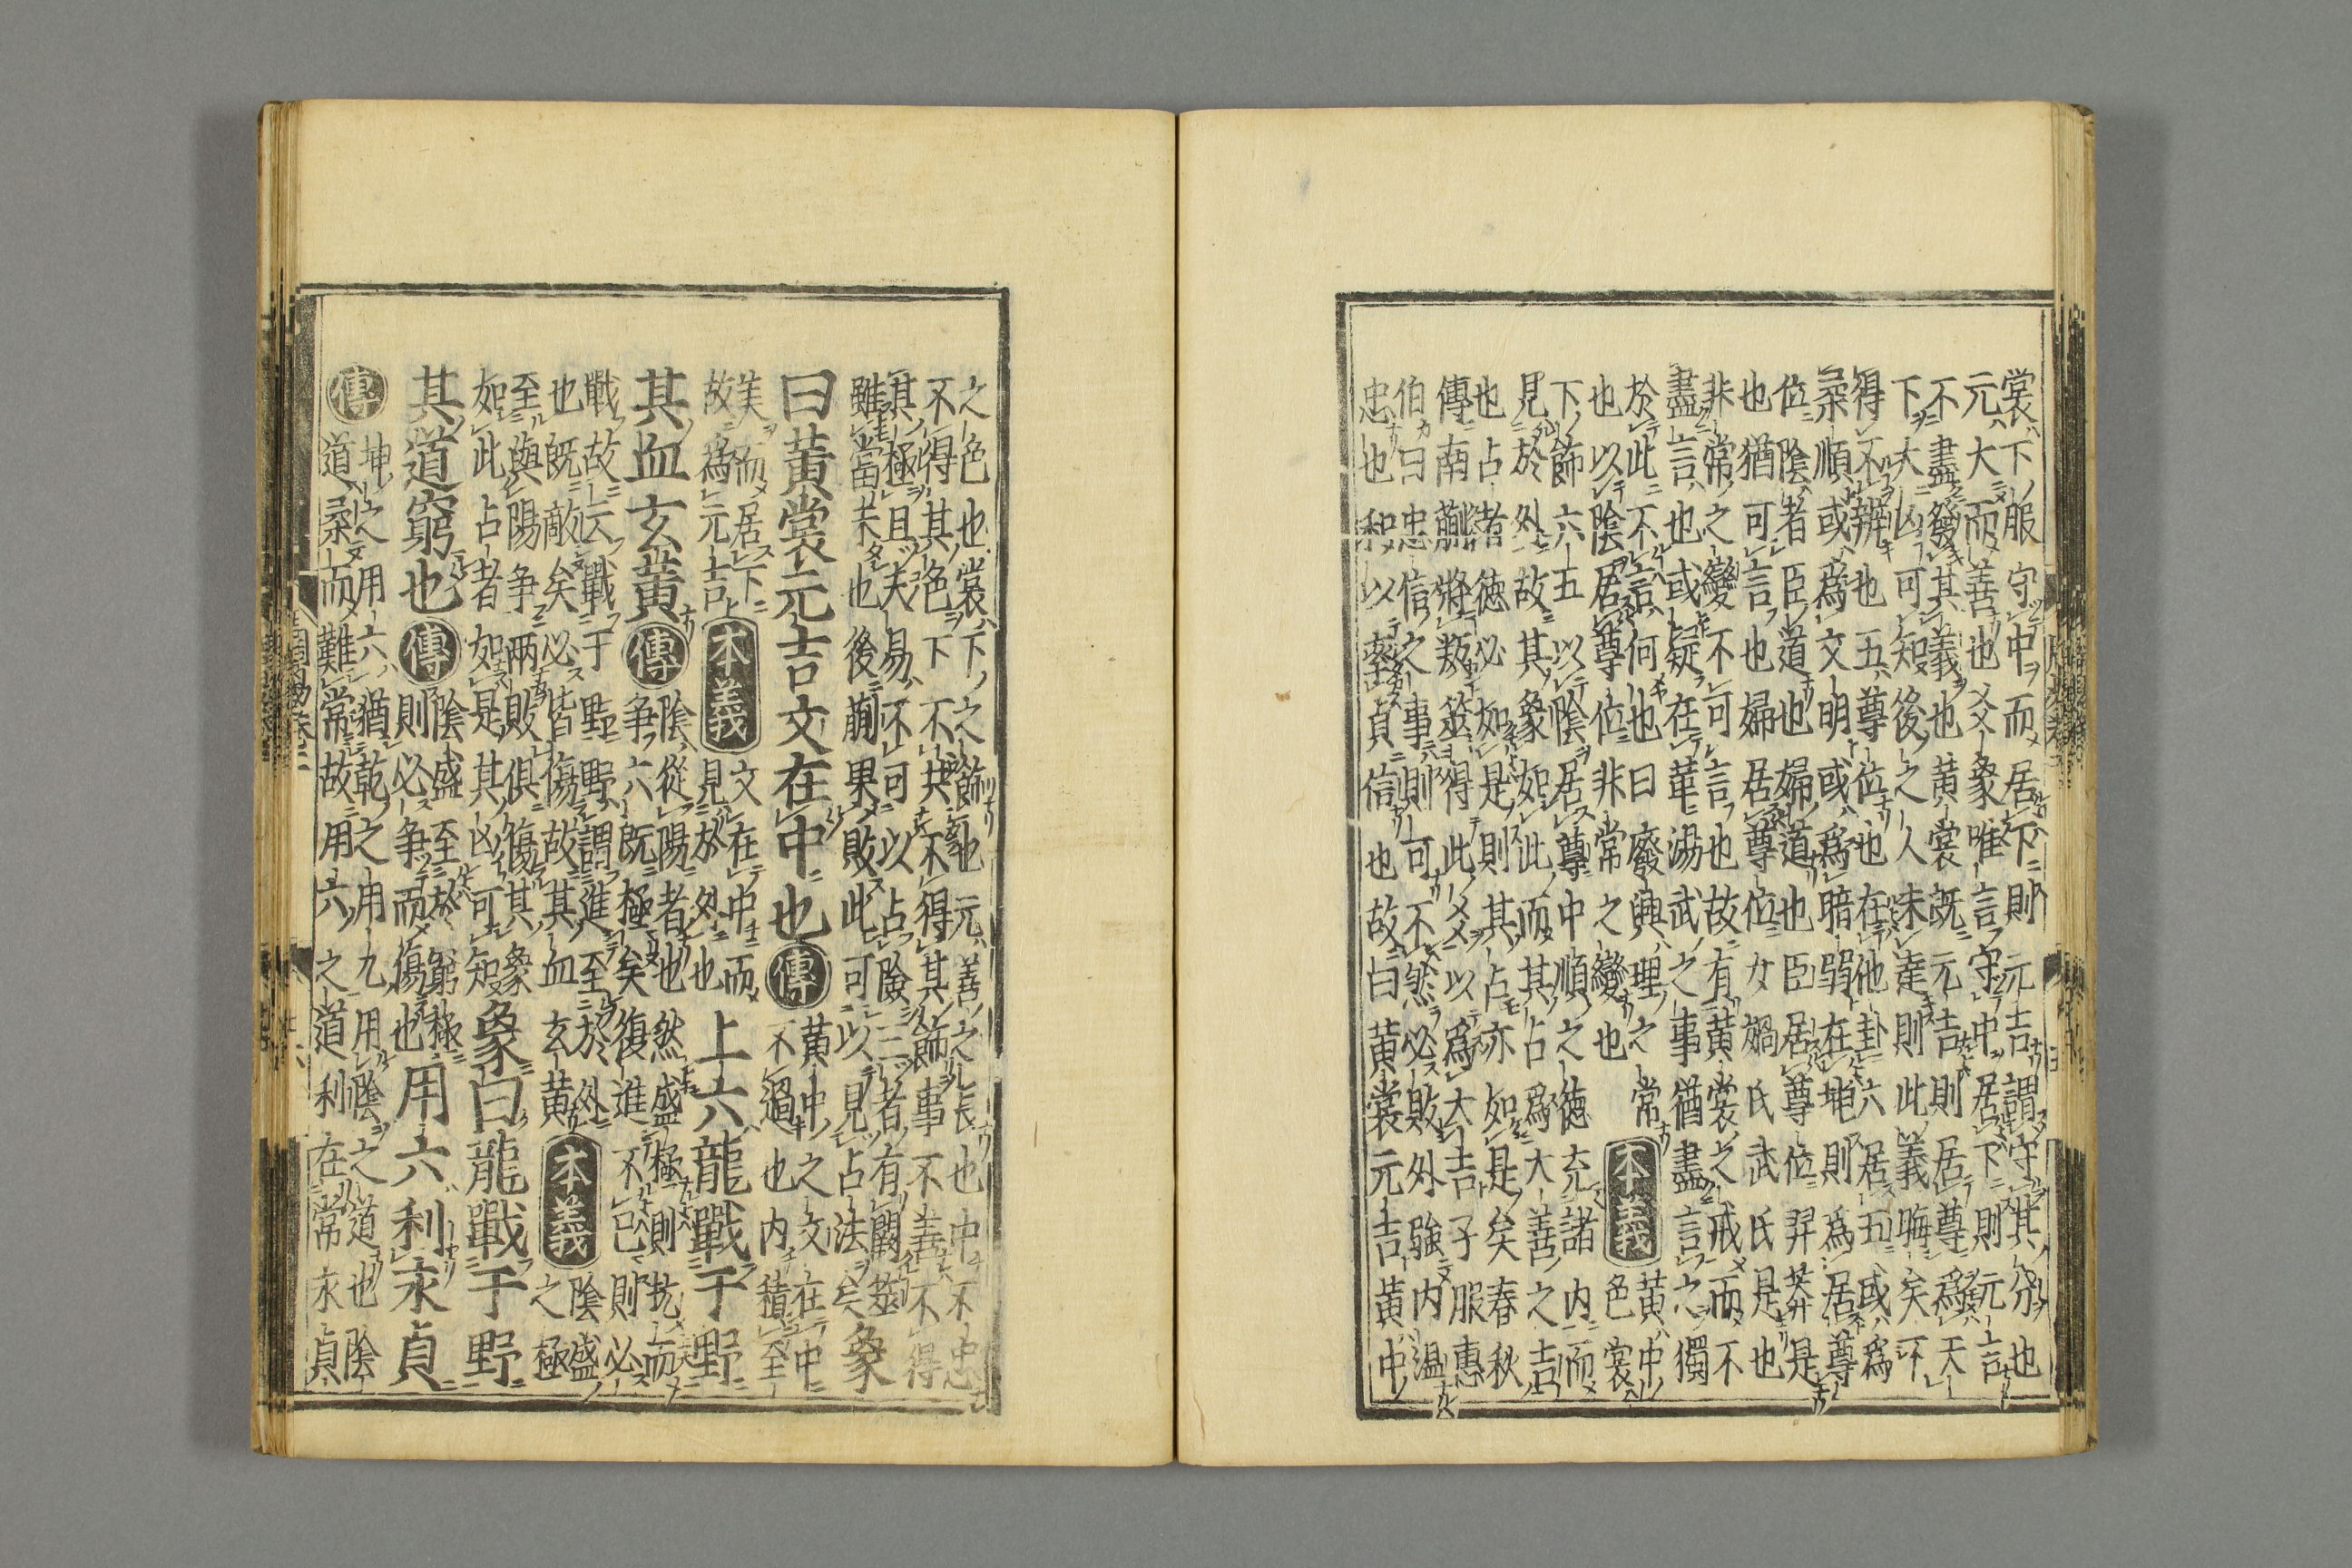 裳下服守中而居下則元吉謂守其分也
元大而善也爻象唯言守中居下則元吉
不盡發其義也黄裳既元吉則居尊爲天
下大凶可知後之人未達則此義晦矣不
得不辨也五尊位也在他卦六居五或爲
柔順或爲文明或爲暗弱在坤則爲居尊
位陰者臣道也婦道也臣居尊位羿莽是
也猶可言也婦居尊位女媧氏武氏是也
非常之變不可言也故有黄裳之戒而不
盡言也或疑在革湯武之事猶盡言之獨
於此不言何也曰廢興理之常
也以陰居尊位非常之變也
本義
黄中
色裳
下飾六五以陰居尊中順之徳充諸内而
見於外故其象如此而其占爲大善之吉
也占者徳必如是則其占亦如是矣春秋
傳南蒯將叛筮得此爻以爲大吉子服惠
伯曰忠信之事則可不然必敗外強内温
忠也和以率貞信也故曰黄裳元吉黄中
之色也裳下之飾也元善之長也中不忠
不得其色下不共不得其飾事不善不得
其極且夫易不可以占險三者有闕筮
雖當未也後蒯果敗此可以見占法矣
象
曰黄裳元吉文在中也
傳
黄中之文在中
不過也内積至
美而居下
故爲元吉
本義
文在中而
見於外也
上六龍戰于野
其血玄黄
傳
陰從陽者也然盛極則抗而
爭六既極矣復進不已則必
戰故云戰于野野謂進至於外
也既敵矣必皆傷故其血玄黄
本義
陰盛
之極
至與陽爭兩敗俱傷其象
如此占者如是其凶可知
象曰龍戰于野
其道窮也
傳
陰盛至於窮極
則必爭而傷也
用六利永貞
傳
坤之用六猶乾之用九用陰之道也陰
道柔而難常故用六之道利在常永貞
周易卷二